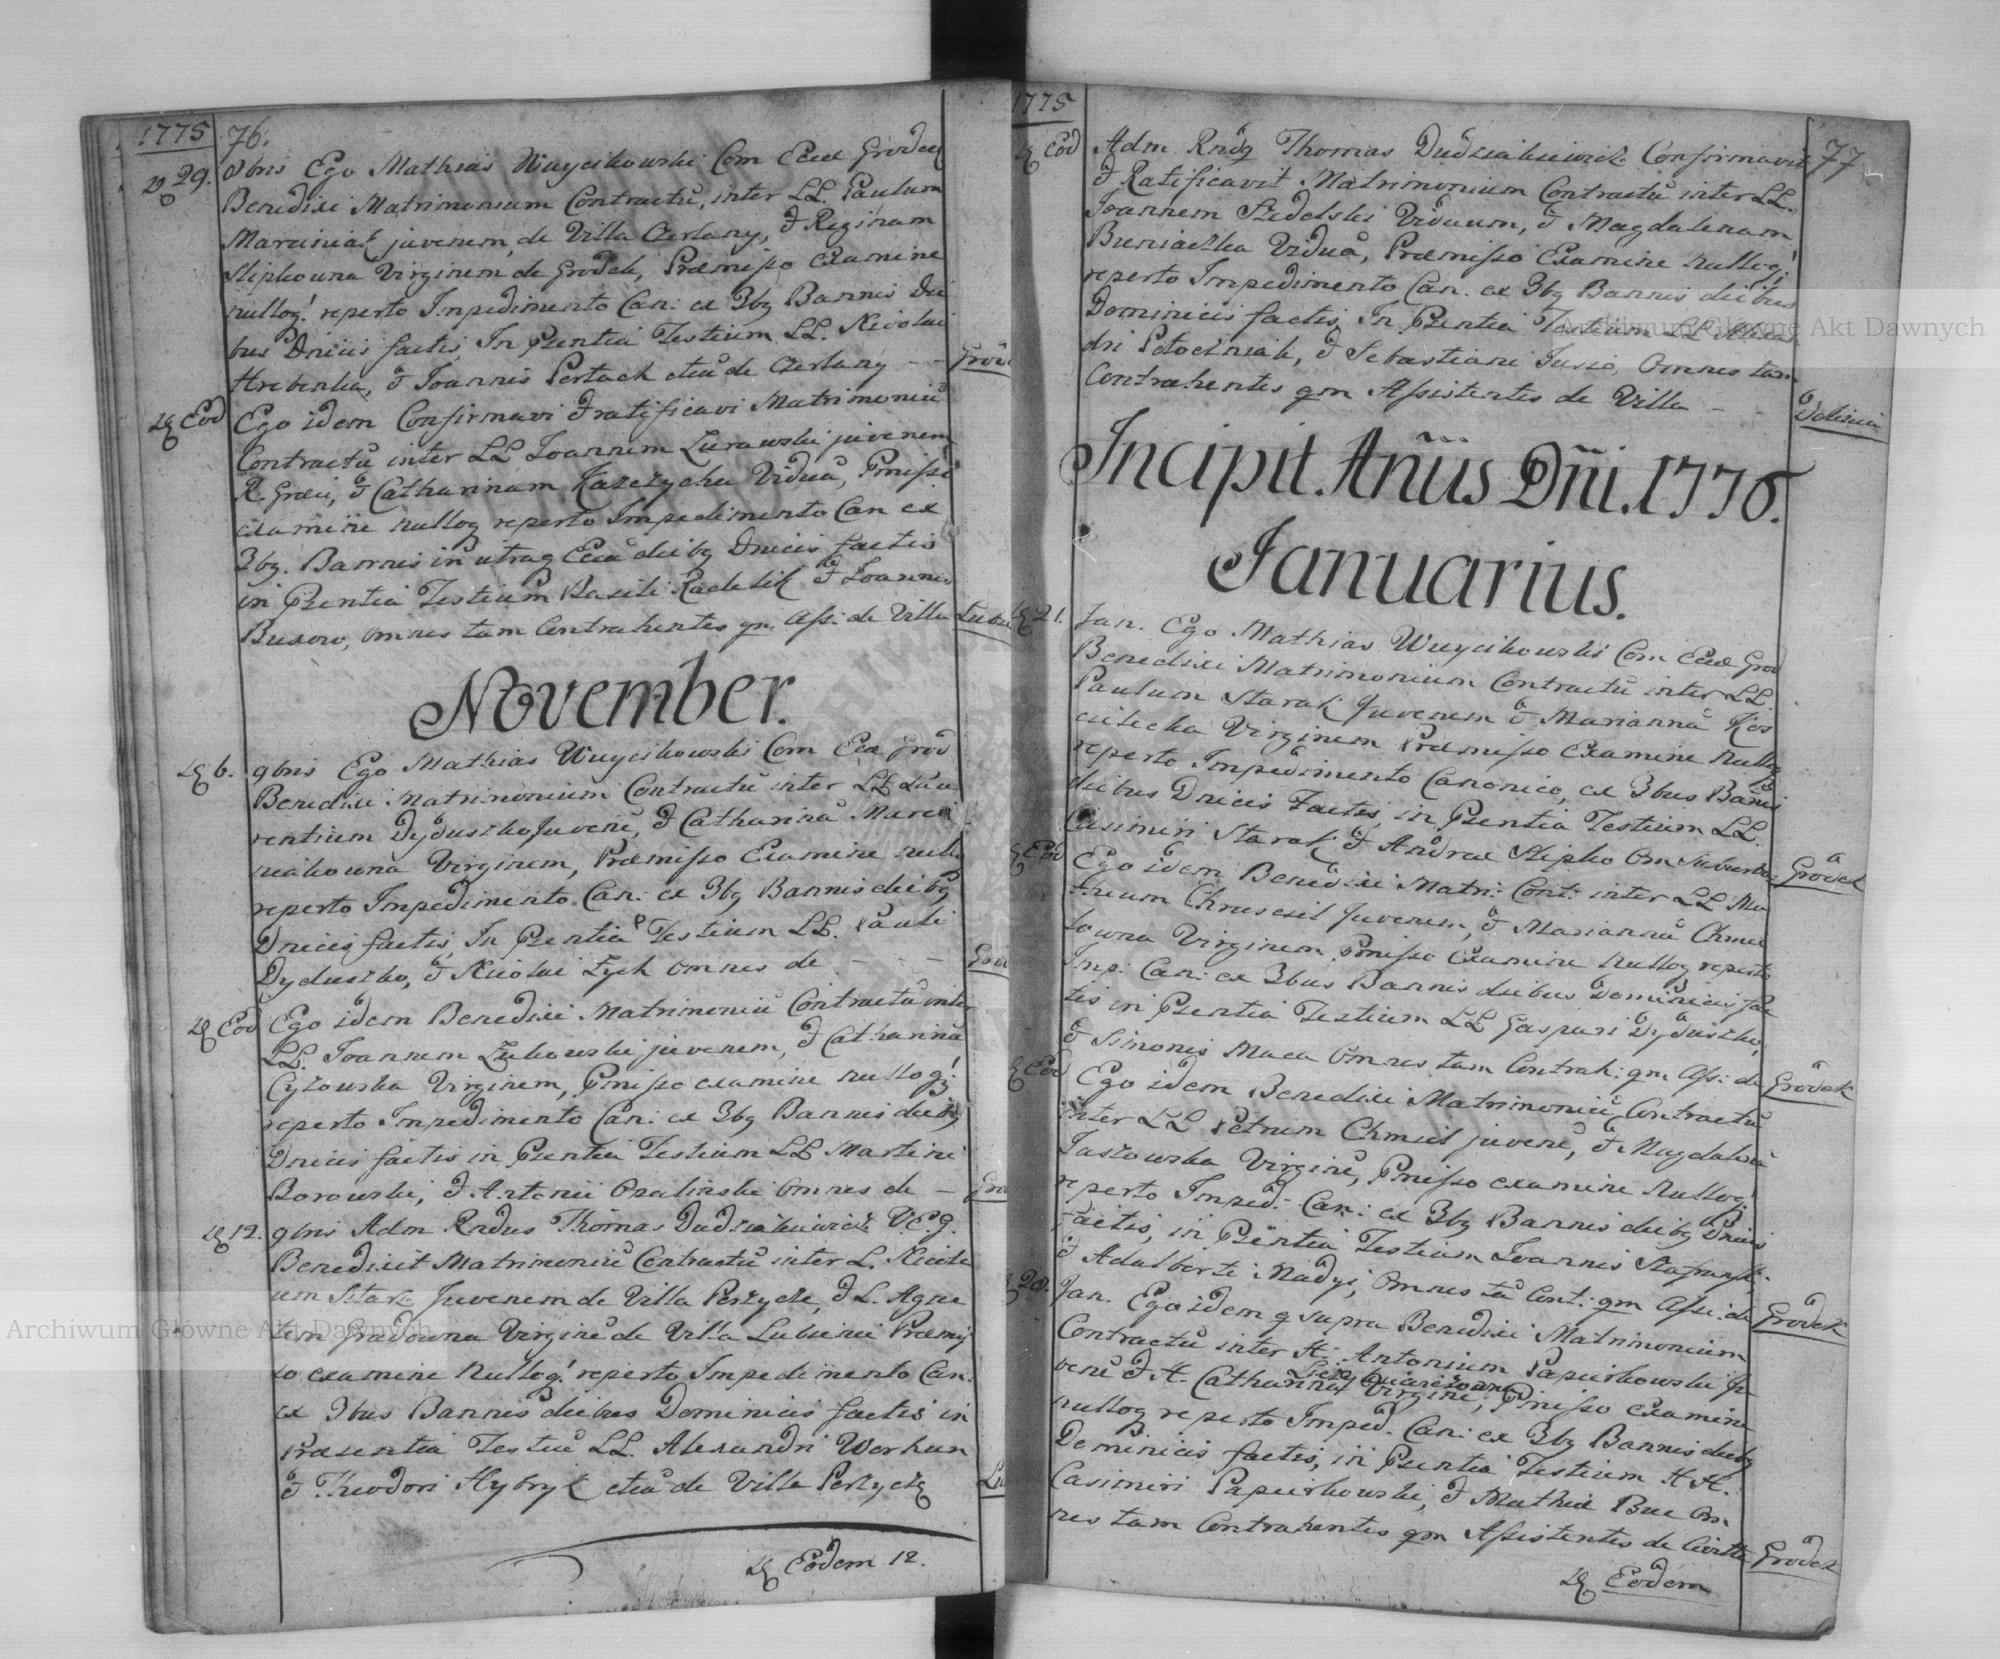 1775 76.
29. 8bris Ego Mathias Wuycikowski Com Eccae Grodec
Benedixi Matrimonium Contractū, inter LL. Paulum
Marciniak juvenem, de Villa Czerlany, & Reginam
Slipkowna Virginem, de Grodek, Præmisso Examine
nulloq́ reperto Impedimento Can: ex 3bq Bannis Die
bus Dnicis factis, In Psentia Testium LL. Nicolai
Hrebenka, & Joannis Pertack etiā de Czerlany - -
Eod Ego idem Confirmavi & ratificavi Matrimoniū
Contractū inter LL Joannem Zurawski juvenem
R. Græci, & Catharinam Viduā, Pmisso
examine nulloq reperto Impedimento Can ex
3bq. Bannis in utraq Ecīa diebq Dnicis factis
in Psentia Testium Basili & Joannis
Buxow, omnes tam Contrahentes qm Ass: de Villa
November.
6. 9bris Ego Mathias Wuycikowski Com Eccæ Grod
Benedixi Matrimonium Contractū inter LL Lau
rentium Dyduszko Juvenē, & Catharinā Marci
niakowna Virginem, Præmisso Examine nulloq
reperto Impedimento Can: ex 3bq Bannis diebq
Dnicis factis, In Psentia Testium LL. Pauli
Dyduszko, & Nicolai Zych omnes de - - -
Eod Ego idem Benedixi Matrimoniū Contractū inter
LL. Joannem Zukowski juvenem, & Catharinā
Cyzowska Virginem, Pmisso examine nulloq́
reperto Impedimento Can: ex 3bq Bannis diebq
Dnicis factis in Psentia Testium LL Martini
Borowski, & Antonii Opalinski Omnes de -
12. 9bris Adm Rndus Thomas Dudziakiewicz V.C.G.
Benedixit Matrimoniū Contractū inter L. Nicola
um Sitarz Juvenem de Villa Porzycze, & L. Agne
tem Gradowna Virginē de Villa Lubienie Præmis
so examine Nulloq́ reperto Impedimento Can.
ex 3bus Bannis diebus Dominicis factis in
Præsentia Testiū LL. Alexandri Worhun
& Theodori Hybryk etiā de Villa Porzycze
Eodem 12.
1775 77
Eod Adm Rndq Thomas Dudziakiewicz Confirmavit
& Ratificavit Matrimonium Contractū inter LL.
Joannem Szedelski Viduum, & Magdalenam
Buniaczka Viduā, Præmisso Examine nulloq́
reperto Impedimento Can: ex 3bq Bannis diebus
Dominicis factis, In Psentia Testium LL Alexan
dri Potoczniak, & Sebastiani Jusio, Omnes tam
Contrahentes qm Assistentes de Villa - -
Incipit Annus Dñi. 1776.
Januarius.
21. Jan. Ego Mathias Wuycikowski Com Eccæ Grod
Benedixi Matrimonium Contractū inter LL.
Paulum Starak Juvenem & Mariannā Kos
cielecka Virginem Præmisso Examine Nulloq
reperto Impedimento Canonico, ex 3bus Bannis
diebus Dnicis Factis, in Psentia Testium LL.
Casimiri Starak & Andreæ Slipko Om Suburba: Grodek
Eod Ego idem Benedixi Matri: Cont: inter LL Ma
thæum Chrusciel Juvenem, & Mariannā Chmie
lowna Virginem Pmisso Examine Nulloq reperto
Imp: Can: ex 3bus Bannis diebus Dominicis fac
tis in Psentia Testium LL Gaspari Dyduszko,
& Simonis Maca Omnes tam Contrah: qm Ass: de Grodek
Eod Ego idem Benedixi Matrimoniū Contractū
inter LL Petrum Chmiel juvenē, & Magdalenā
Jastowska Virginē, Pmisso examine Nulloq́
reperto Imped: Can: ex 3bq Bannis diebq Dnicis
factis, in Psentia Testium Joannis
& Adalberti Madyi, Omnes tā Cont: qm Assi: de Grodek
28. Jan. Ego idem q supra Benedixi Matrimonium
Contractū inter H. Antonium Papierkowski Ju
venē & H. Catharinā Virginē, Pmisso Examine
nulloq reperto Imped. Can: ex 3bq Bannis diebq
Dominicis factis, in Psentia Testium HH.
Casimiri Papierkowski, & Mathiæ Buc Om
nes tam Contrahentes qm Assistentes de Civitte Grodek
Eodem
Archiwum Główne Akt Dawnych
Archiwum Główne Akt Dawnych